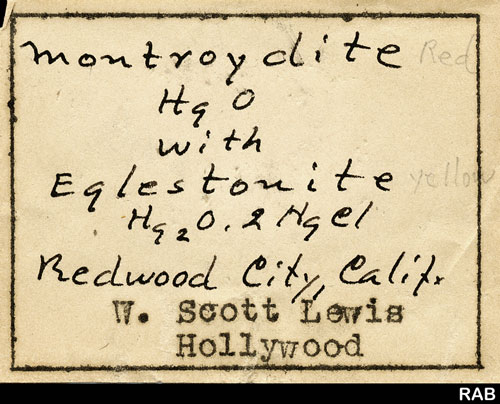 Montroydite Red
HgO
with
Eglestonite yellow
Hg₂O.2HgCl
Redwood City, Calif.
W. Scott Lewis
Hollywood
RAB